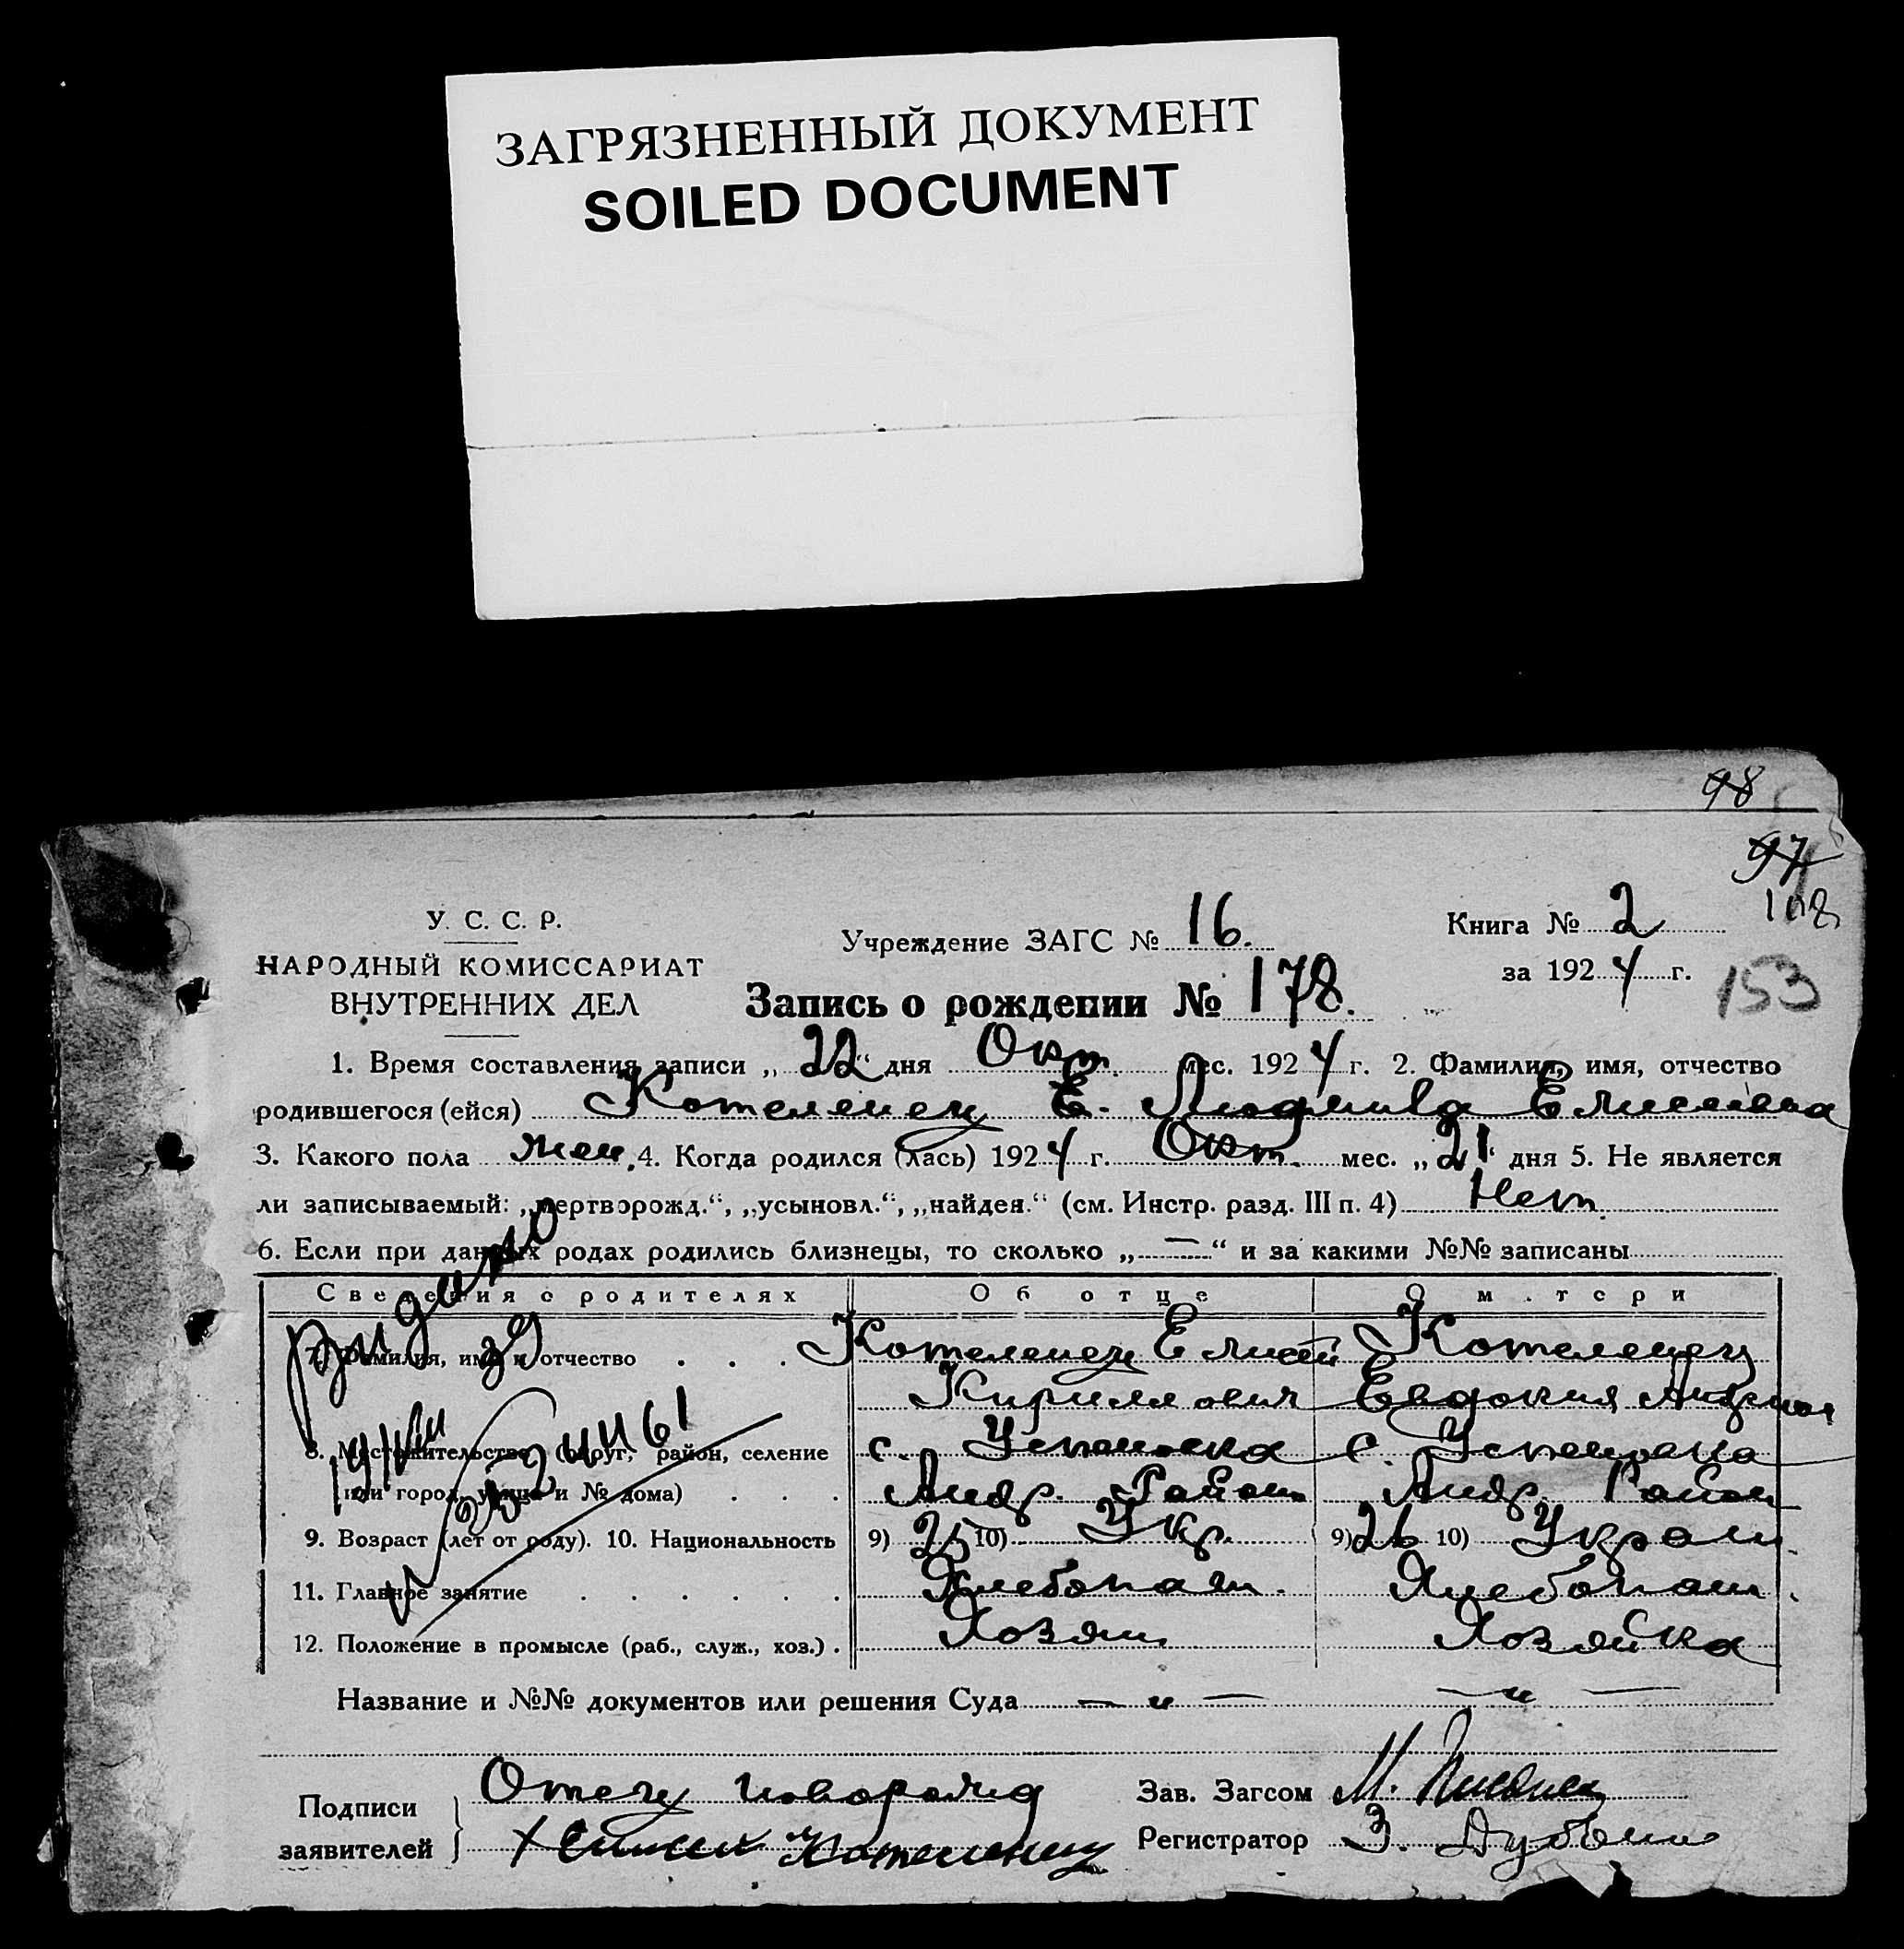 ЗАГРЯЗНЕННЫЙ ДОКУМЕНТ
SOILED DOCUMENT
98
97
108
153
У. С. С. Р.
НАРОДНЫЙ КОМИССАРИАТ
ВНУТРЕННИХ ДЕЛ
Учреждение ЗАГС № 16.
Книга № 2
за 1924 г.
Запись о рождении № 178.
1. Время составления записи „22“ дня Окт. мес. 1924 г. 2. Фамилия, имя, отчество
родившегося (ейся) Котеленец Е. Людмила Елисеевна
3. Какого пола жен. 4. Когда родился (лась) 1924 г. Окт. мес. „21“ дня 5. Не является
ли записываемый: „мертворожд.“, „усыновл.“, „найден.“ (см. Инстр. разд. III п. 4) Нет.
6. Если при данных родах родились близнецы, то сколько „—“ и за какими №№ записаны
Сведения о родителях Об отце О матери
7. Фамилия, имя и отчество . . . Котеленец Елисей Котеленец
Кириллович Евдокия
8. Местожительство (округ, район, селение с. Успеновка с. Успеновка
или город, улица и № дома) . . . Андр. Район Андр. Район
9. Возраст (лет от роду). 10. Национальность 9) 25 10) Укр. 9) 26 10) Украин.
11. Главное занятие . . . . . . Хлебопаш. Хлебопаш.
12. Положение в промысле (раб., служ., хоз.) . Хозяин Хозяйка
Название и №№ документов или решения Суда — „ — — „ —
Подписи
заявителей
Отец новорожд
+ Елисей Котеленец
Зав. Загсом М.
Регистратор З.